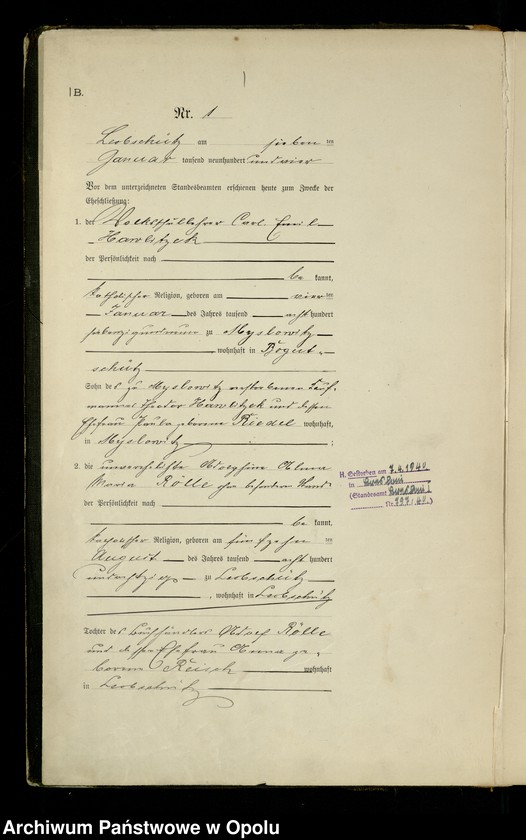 B.
Nr. 1
Leobschütz am sieben ten
Januar tausend neunhundert und vier
Vor dem unterzeichneten Standesbeamten erschienen heute zum Zwecke der
Eheschließung:
1. der Volksschullehrer Carl Emil
Hawlitzek
der Persönlichkeit nach
be kannt,
katholischer Religion, geboren am vier ten
Januar des Jahres tausend acht hundert
siebenzig und neun zu Myslowitz
, wohnhaft in Bogut-
schütz
Sohn des zu Myslowitz verstorbenen Kauf-
manns Theodor Hawlitzek und dessen
Ehefrau Paula geborene Riedel wohnhaft,
in Myslowitz ;
2. die unverehelichte Adolfine Anna
Maria Rölle ohne besonderen Stand
der Persönlichkeit nach
be kannt,
katholischer Religion, geboren am fünfzehn ten
August des Jahres tausend acht hundert
und achtzig zu Leobschütz
, wohnhaft in Leobschütz
Tochter des Buchhändlers Adolf Rölle
und dessen Ehefrau Anna ge-
borene Reisch wohnhaft
in Leobschütz
H. Gestorben am 7.4.1940
in
(Standesamt
Nr. 797/40.)
Archiwum Państwowe w Opolu